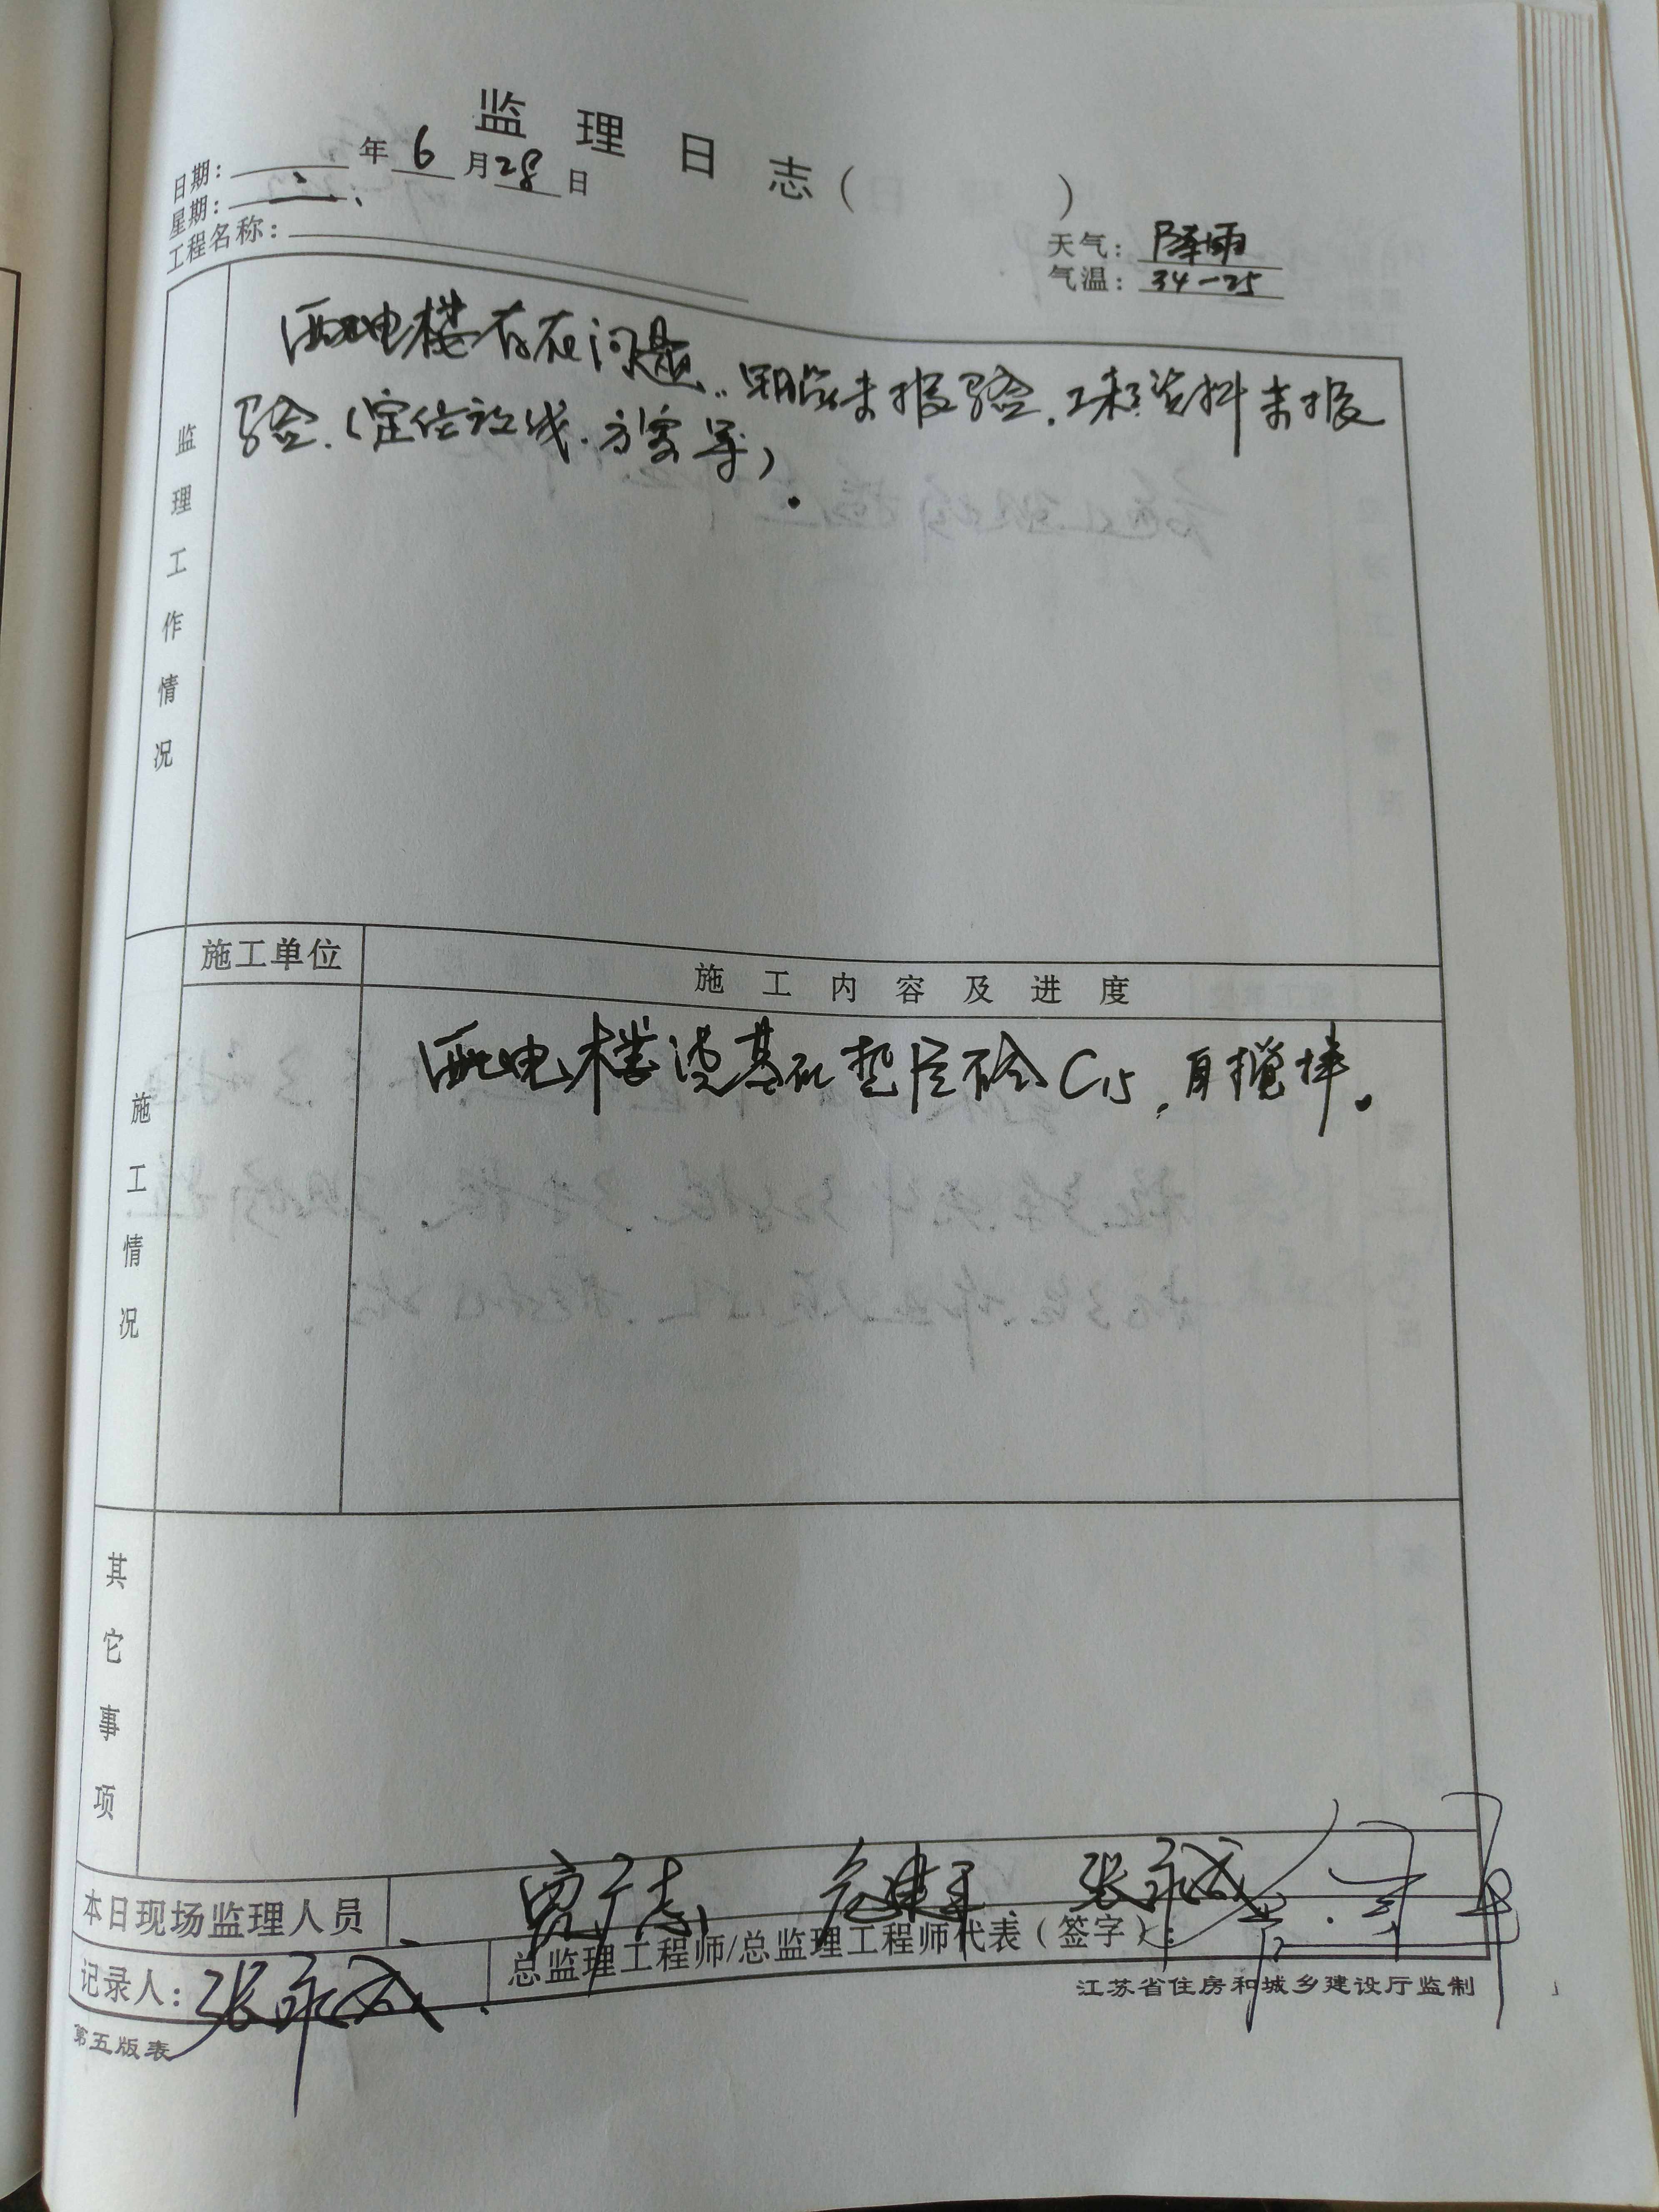 监理日志（ ）
日期： 年 6 月 28 日
星期： 二.
工程名称：
天气： 阵雨
气温： 34-25
监理工作情况
配电楼存在问题.. 钢筋未报验. 工程资料未报
验.（定位放线. 方案等）.
施工单位
施工内容及进度
施工情况
配电楼浇基础垫层砼C15, 自搅拌。
其它事项
本日现场监理人员
张永成
记录人： 张永成.
总监理工程师/总监理工程师代表（签字）：
第五版表
江苏省住房和城乡建设厅监制